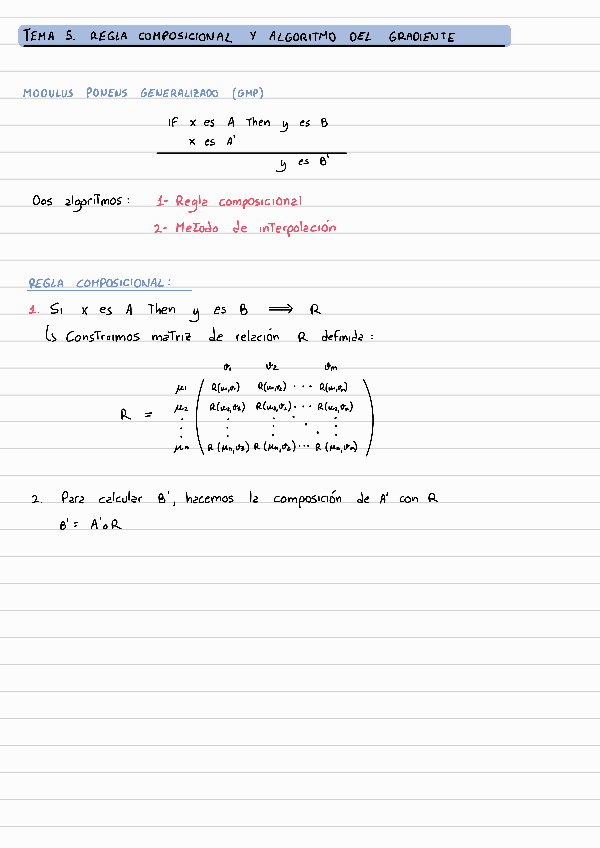 TEMA 5. REGLA COMPOSICIONAL Y ALGORITMO DEL GRADIENTE
MODULUS PONENS GENERALIZADO (GMP)
IF x es A Then y es B
x es A'
y es B'
Dos algoritmos: 1- Regla composicional
2- Metodo de interpolación
REGLA COMPOSICIONAL:
1. Si x es A Then y es B ⟹ R
↳ Construimos matriz de relación R definida:
v1 v2 vm
μ1 R(u1,v1) R(u1,v2) ... R(u1,vn)
R = μ2 R(u2,v2) R(u2,v2) ... R(u2,vn)
μn R(μn,v2) R(μn,v2) ... R(μn,vn)
2. Para calcular B', hacemos la composición de A' con R
B' = A'∘R